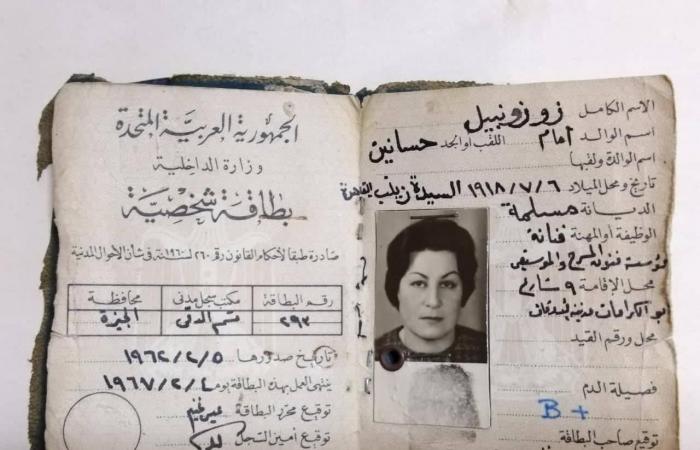 الجمهورية العربية المتحدة
وزارة الداخلية
بطاقة شخصية
صادرة طبقا لأحكام القانون رقم ٢٦٠ لسنة ١٩٦٠ في شأن الأحوال المدنية
رقم البطاقة مكتب سجل مدني محافظة
٢٩٣ قسم الدقى الجيزة
تاريخ صدورها ١٩٦٢/٢/٥
ينتهى العمل بهذه البطاقة يوم ١٩٦٧/٢/٤
توقيع محرر البطاقة
توقيع أمين السجل
الاسم الكامل زوزو نبيل
اسم الوالد امام اللقب أو الجد حسانين
اسم الوالدة ولقبها
تاريخ ومحل الميلاد ١٩١٨/٧/٦ السيدة زينب القاهرة
الديانة مسلمة
الوظيفة أو المهنة فنانة
مؤسسة فنون المسرح والموسيقى
محل الإقامة ٩ شارع
مدينة
محل ورقم القيد
فصيلة الدم
B +
توقيع صاحب البطاقة